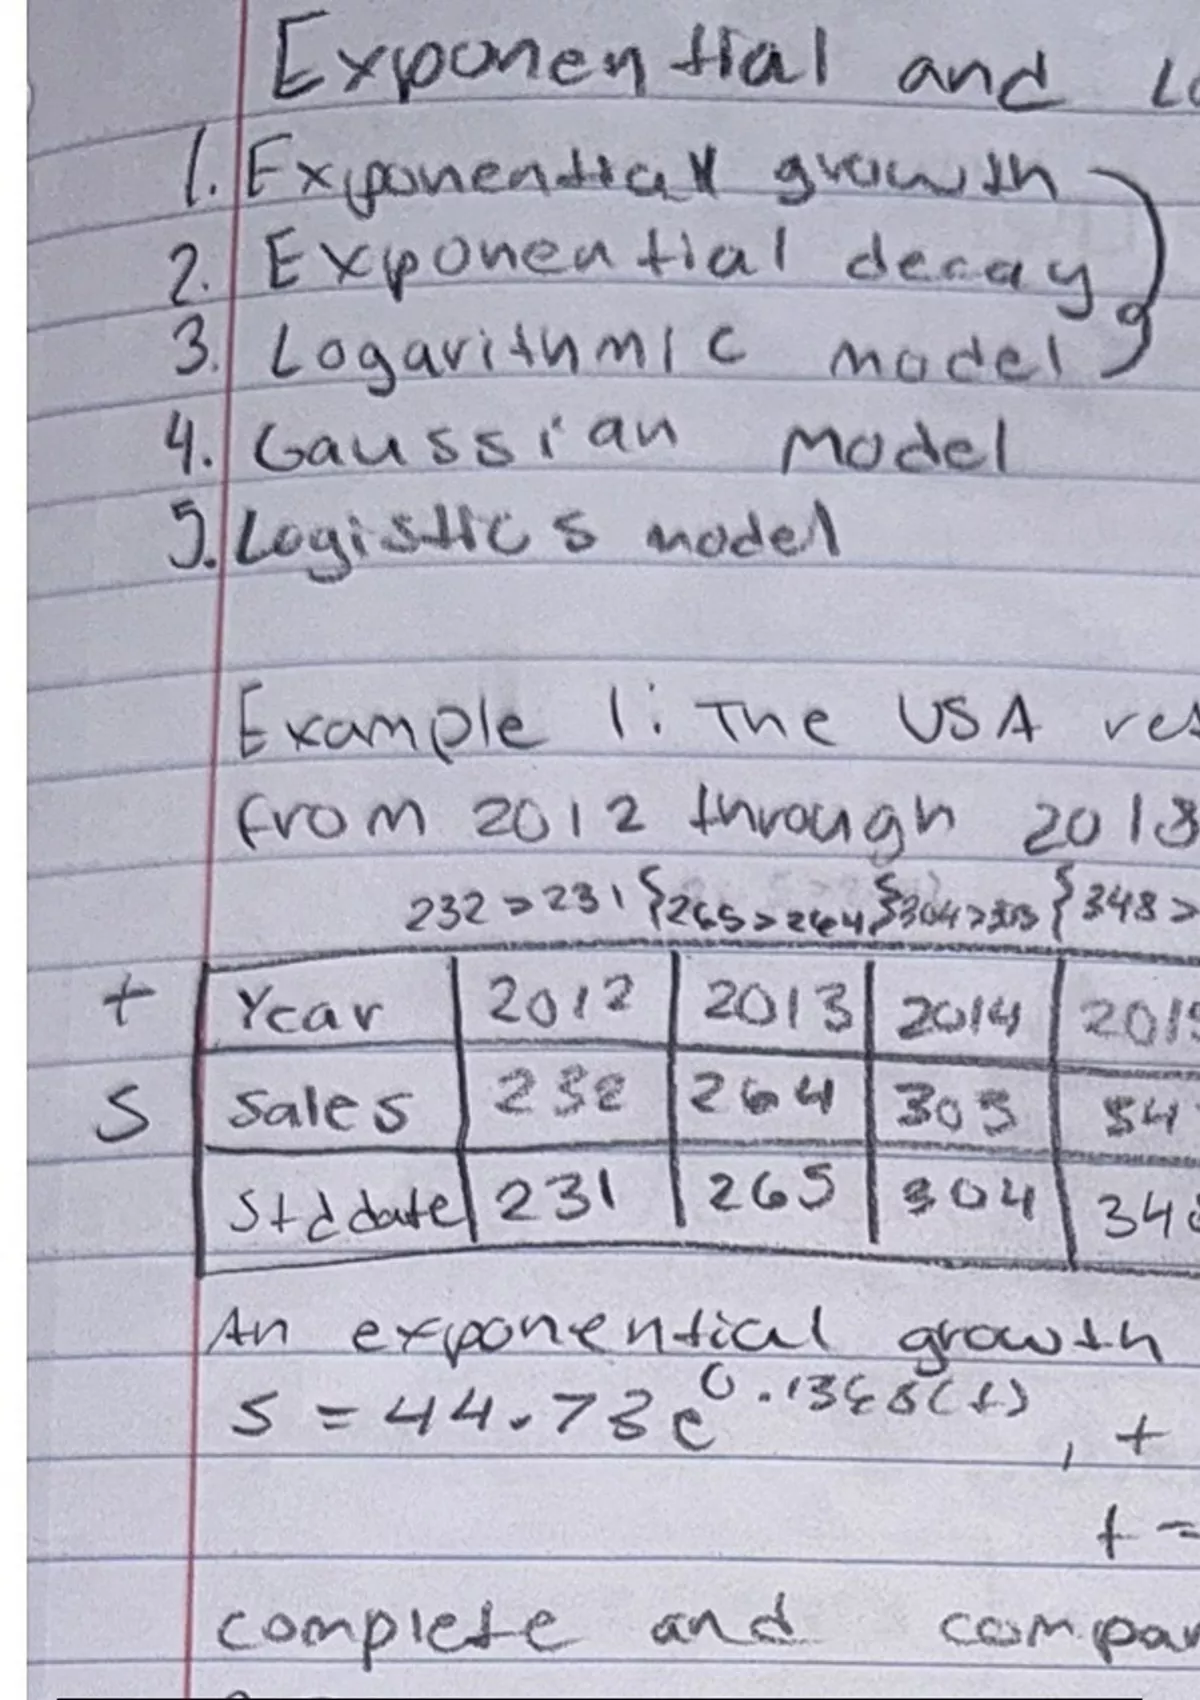 Exponential and Lo
1. Exponential growth
2. Exponential decay
3. Logarithmic model
4. Gaussian Model
5. Logistics model
Example 1: The USA ret
from 2012 through 2018
232 > 231 { 265 > 264 } 304 > 303 { 348 >
t Year 2012 2013 2014 2015
S Sales 232 264 303 34
Std date 231 265 304 348
An exponential growth
S = 44.73e^0.1368(t), t
t =
complete and compar